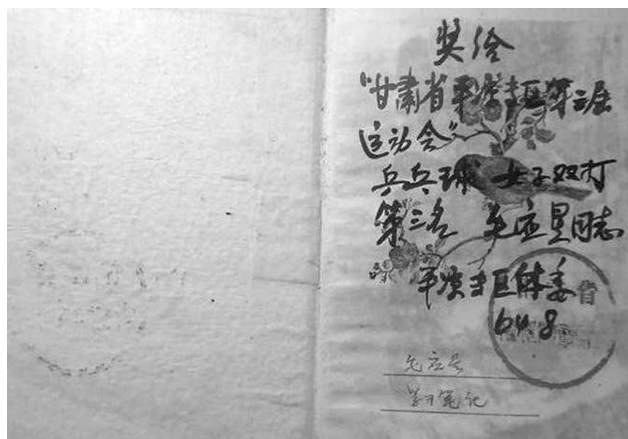 奖给
"甘肃省平凉专区第二届
运动会"
乒乓球 女子双打
第三名 同志
平凉专区体委
64.8
省
学习笔记